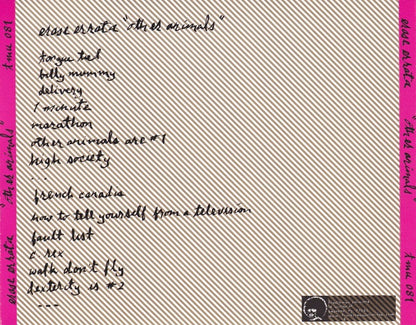 erase errata "other animals"
tongue tied
billy mummy
delivery
1 minute
marathon
other animals are #1
high society
...
french canadia
how to tell yourself from a television
fault list
c rex
walk don't fly
dexterity is #2
---
erase errata "other animals" tmu 081
erase errata "other animals" tmu 081